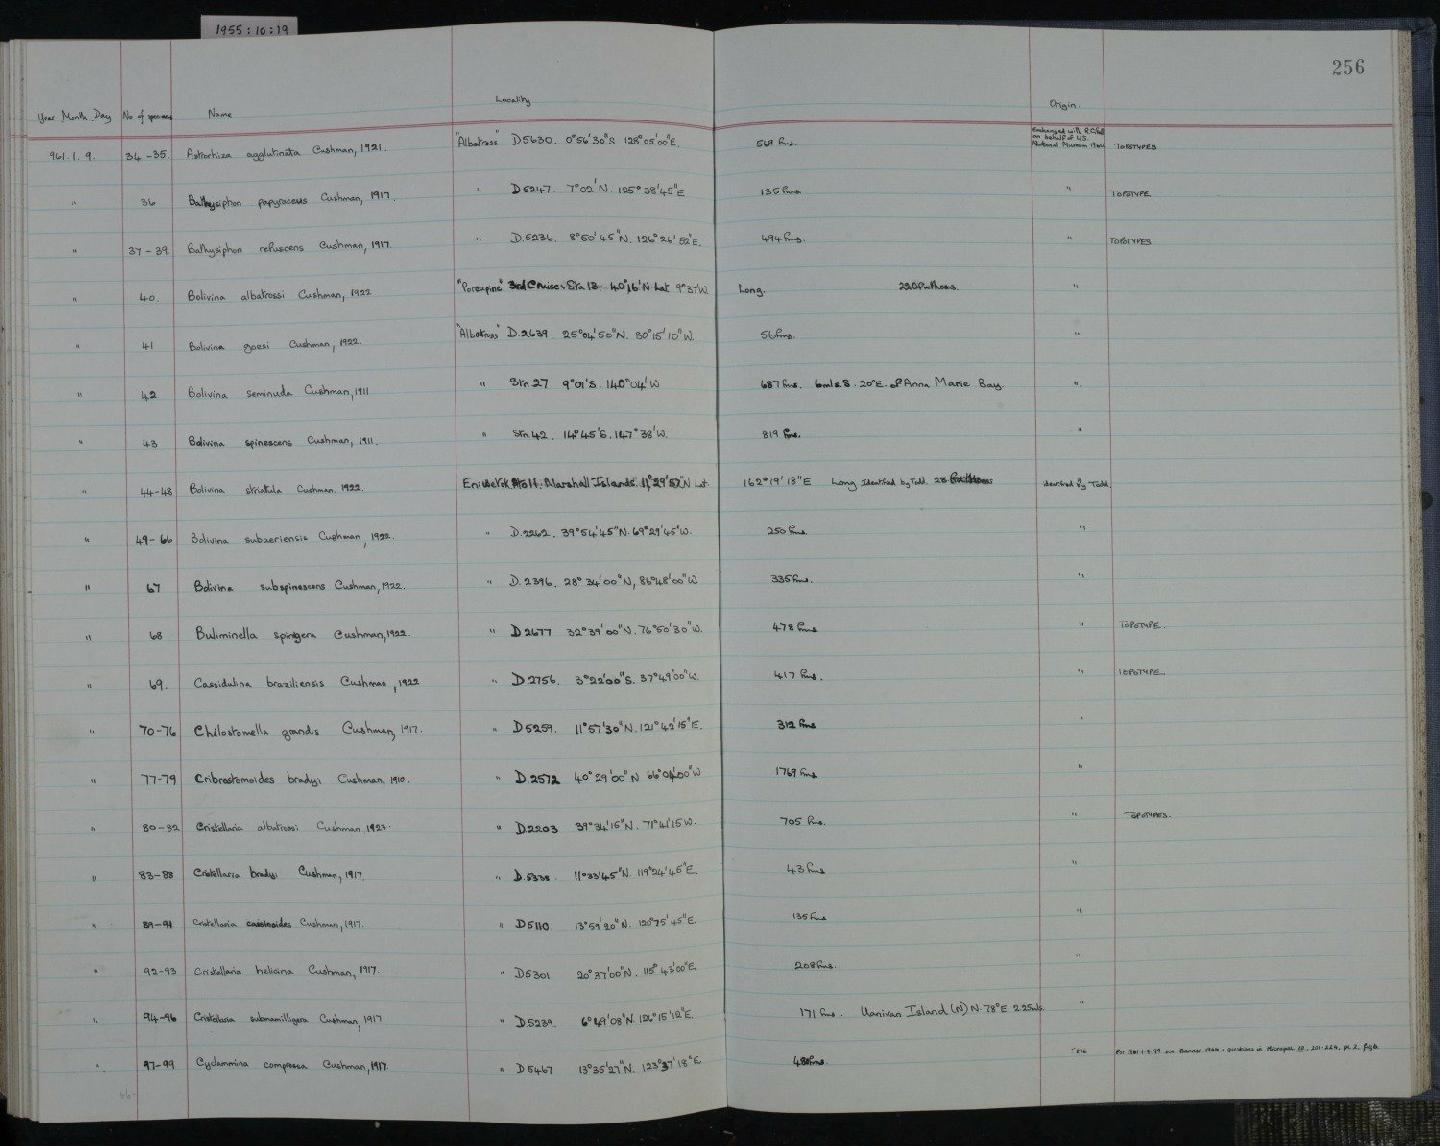 1955:10:19
256
Year Month Day No of specimens Name Locality Origin.
961.1.9. 34-35. Astrorhiza agglutinata Cushman, 1921. "Albatross" D5630. 0°56'30"S 128°05'00"E. 569 fms. Exchanged with R.Cifelli on behalf of U.S. National Museum TOPOTYPES
" 36 Bathysiphon papyraceus Cushman, 1917. " D5247. 7°02'N. 125°38'45"E 135 fms " TOPOTYPE.
" 37-39 Bathysiphon rufuscens Cushman, 1917. " D.5236. 8°50'45"N. 126°26'52"E. 494 fms. " TOPOTYPES
" 40. Bolivina albatrossi Cushman, 1922 "Porcupine" 3rd Cruise. Stn 13 40°16'N Lat 9°37'W Long. 220 fathoms. "
" 41 Bolivina goesi Cushman, 1922. "Albatross" D.2639. 25°04'50"N. 80°15'10"W. 56 fms. "
" 42 Bolivina seminuda Cushman, 1911 " Stn 27 9°01'S. 140°04'W 687 fms. 6mls S. 20°E. of Anna Marie Bay. "
" 43 Bolivina spinescens Cushman, 1911. " Stn 42. 14°45'S. 147°38'W. 819 fms. "
" 44-48 Bolivina striatula Cushman. 1922. Eniwetok Atoll. Marshall Islands. 11°29'52"N Lat. 162°19'13"E Long Identified by Todd. 28 fathoms identified by Todd.
" 49-66 Bolivina subaeriensis Cushman, 1922. " D.2262. 39°54'45"N. 69°29'45"W. 250 fms. "
" 67 Bolivina subspinescens Cushman, 1922. " D.2396. 28°34'00"N, 86°48'00"W 335 fms. "
" 68 Buliminella spinigera Cushman, 1922. " D2677 32°39'00"N. 76°50'30"W. 478 fms " TOPOTYPE.
" 69. Cassidulina braziliensis Cushman, 1922 " D2756. 3°22'00"S. 37°49'00"W. 417 fms. " TOPOTYPE.
" 70-76 Chilostomella grandis Cushman, 1917. " D5259. 11°57'30"N. 121°42'15"E. 312 fms "
" 77-79 Cribrostomoides bradyi Cushman. 1910. " D.2572 40°29'00"N 66°04'00"W 1769 fms "
" 80-82 Cristellaria albatrossi Cushman. 1923. " D.2203 39°34'15"N. 71°41'15W. 705 fms. " TOPOTYPES.
" 83-88 Cristellaria bradyi Cushman, 1917. " D.5338. 11°33'45"N. 119°24'45"E. 43 fms "
" 89-91 Cristellaria cassinoides Cushman, 1917. " D5110 13°59'20"N. 120°75'45"E. 135 fms "
" 92-93 Cristellaria helicina Cushman, 1917. " D5301 20°37'00"N. 115°43'00"E. 208 fms. "
" 94-96 Cristellaria submamilligera Cushman, 1917 " D.5239. 6°49'08"N. 126°15'12"E. 171 fms. Uanivan Island (N) N. 78°E 2.25mls. "
" 97-99 Cyclammina compressa Cushman, 1917. " D5467 13°35'27"N. 123°37'18"E. 480 fms.